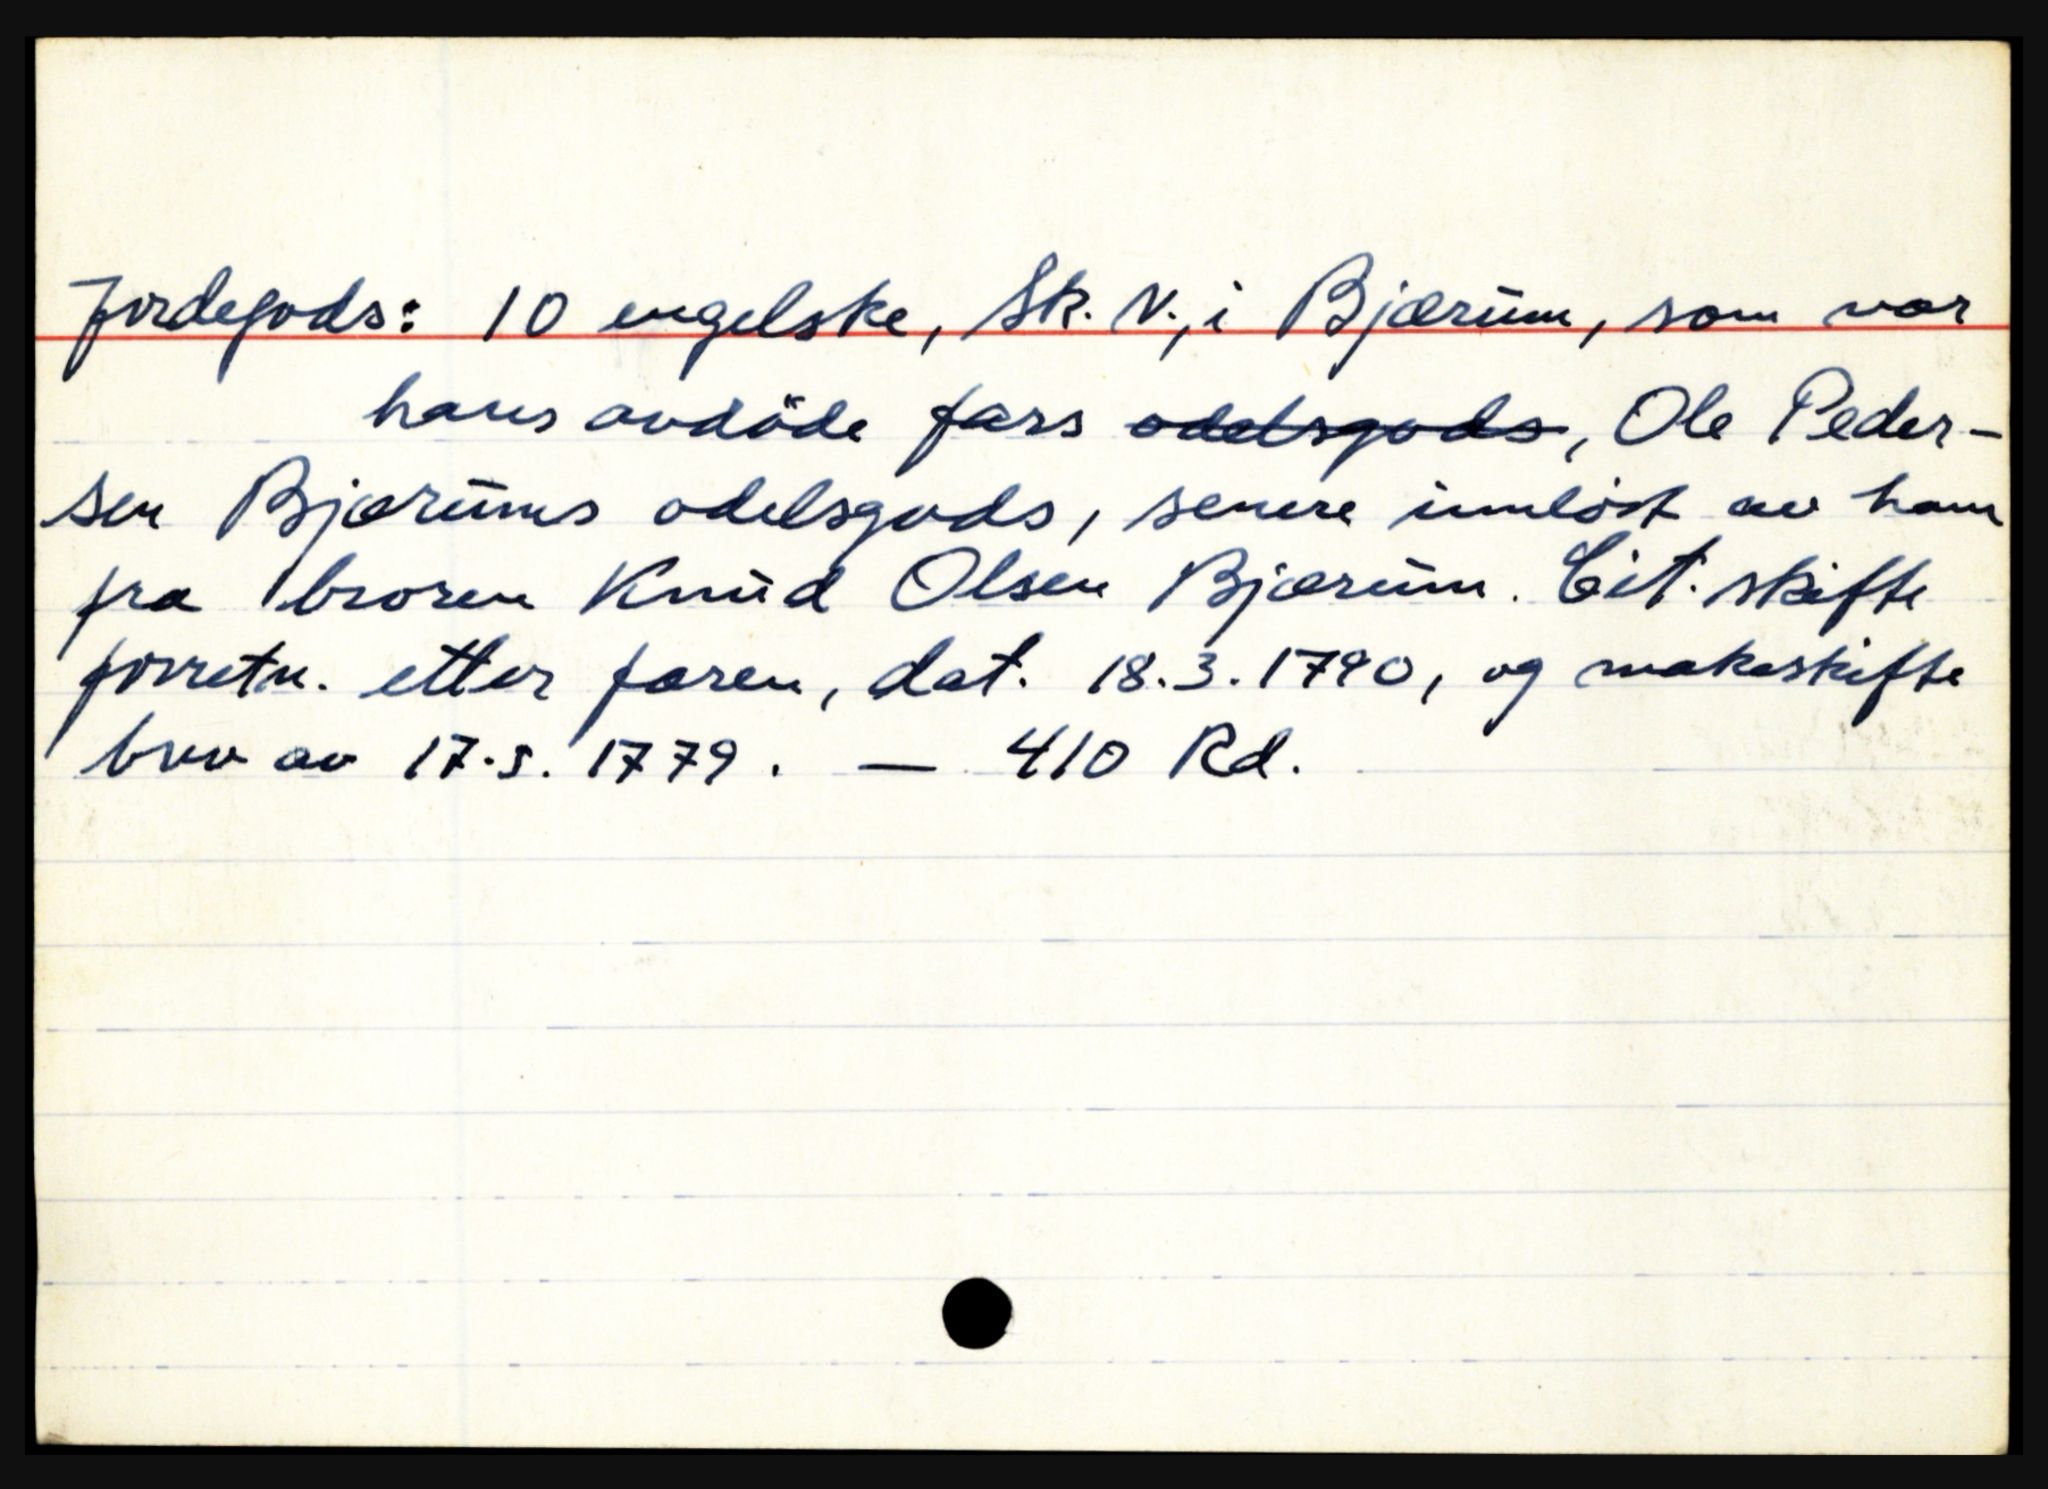 Jordegods: 10 engelske, Sk. V., i Bjærŭm, som var
hans avdöde fars odelsgods, Ole Peder-
sen Bjærŭms odelsgods, senere innløst av ham
fra broren Knŭd Olsen Bjærŭm. Cit. skifte
forretn. etter faren, dat. 18.3.1790, og makeskifte
brev av 17.5.1779. — 410 Rd.